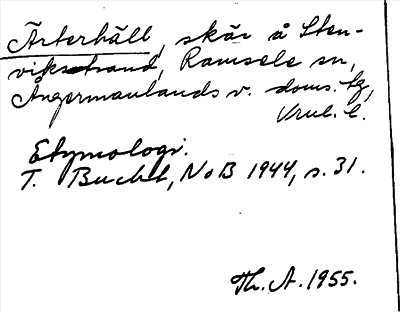 Ärterhäll, skär å Sten-
vikstrand, Ramsele sn,
Ångermanlands v. doms. tg,
Vrnl. l.
Etymologi.
T. Bucht, NoB 1944, s. 31.
Th. A. 1955.